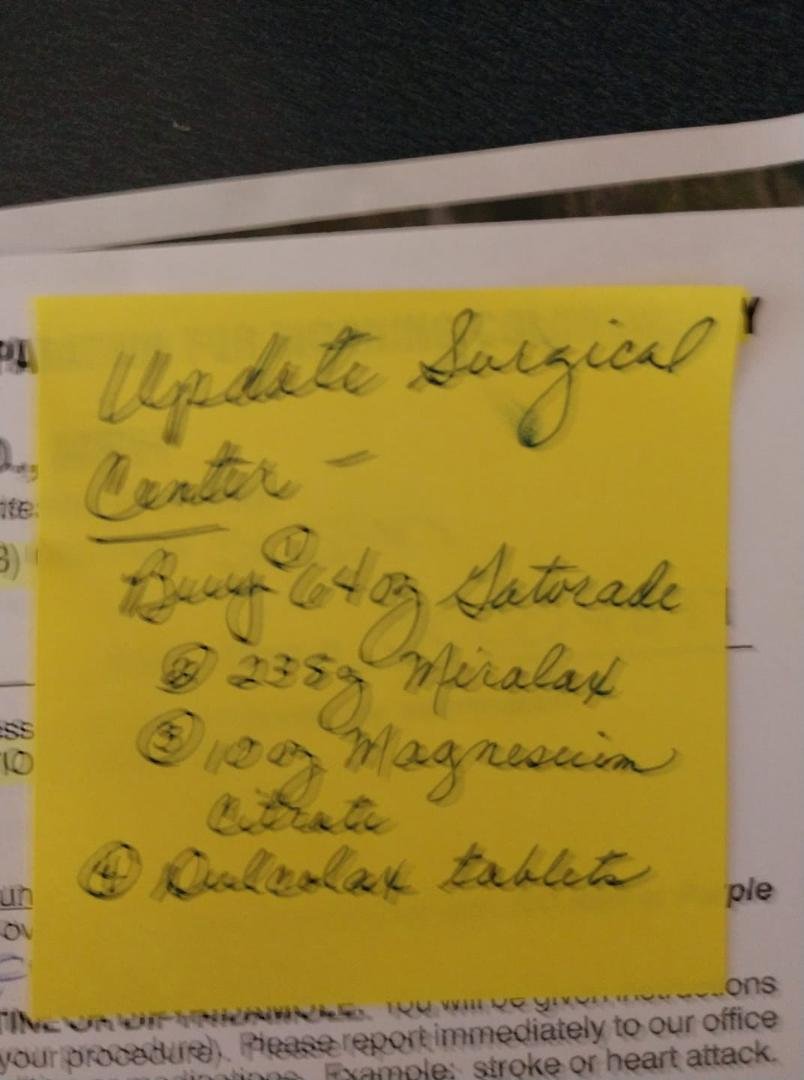 Y
PA
Update Surgical
Center -
Buy ① 64oz Gatorade
② 238g Miralax
③ 10oz Magnesium
Citrate
④ Dulcolax tablets
ple
ons
You will be given instructions
your procedure). Please report immediately to our office
Example: stroke or heart attack.